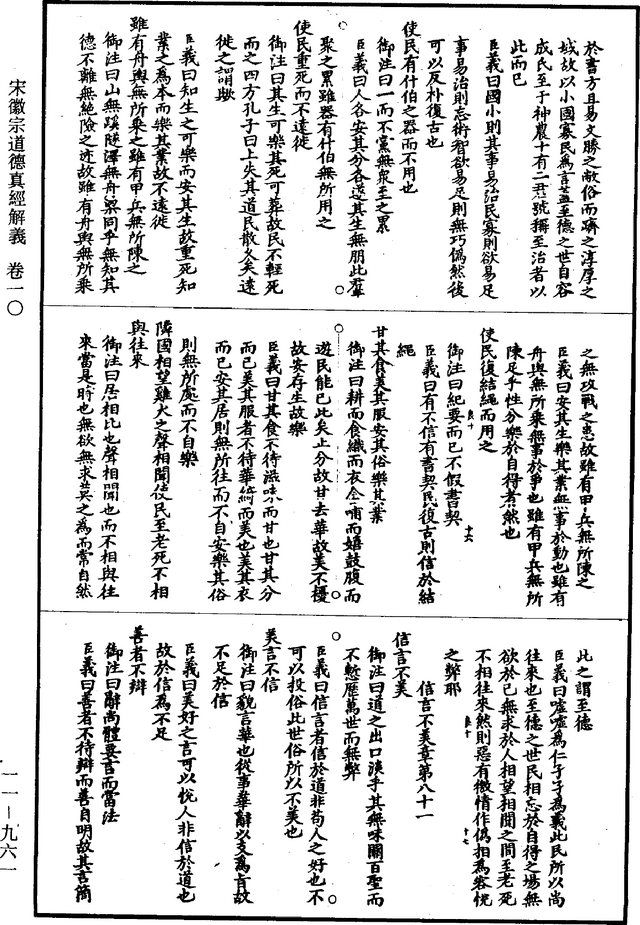 於書方且易文勝之敝俗而躋之淳厚之
域故以小國寡民為言蓋至德之世自容
成氏至于神農十有二君號稱至治者以
此而已
臣義曰國小則其事易治民寡則欲易足
事易治則忘術智欲易足則無巧偽然後
可以反朴復古也
使民有什伯之器而不用也
御注曰一而不黨無衆至之累
臣義曰人各安其分各遂其生無朋比羣
聚之累雖器有什伯無所用之
使民重死而不遠徙
御注曰其生可樂其死可葬故民不輕死
而之四方孔子曰上失其道民散久矣遠
徙之謂歟
臣義曰知生之可樂而安其生故重死知
業之為本而樂其業故不遠徙
雖有舟輿無所乘之雖有甲兵無所陳之
御注曰山無蹊隧澤無舟梁同乎無知其
德不離無絕險之迹故雖有舟輿無所乘
之無攻戰之患故雖有甲兵無所陳之
臣義曰安其生樂其業無事於動也雖有
舟輿無所乘無事於爭也雖有甲兵無所
陳足乎性分樂於自得者然也
使民復結繩而用之
御注曰紀要而已不假書契
臣義曰有不信有書契民復古則信於結
繩
甘其食美其服安其俗樂其業
御注曰耕而食織而衣含哺而嬉鼓腹而
遊民能已此矣止分故甘去華故美不擾
故安存生故樂
臣義曰甘其食不待滋味而甘也甘其分
而已美其服者不待華綺而美也美其衣
而已安其居則無所往而不自安樂其俗
則無所處而不自樂
隣國相望雞犬之聲相聞使民至老死不相
與往來
御注曰居相比也聲相聞也而不相與往
來當是時也無欲無求莫之為而常自然
此之謂至德
臣義曰噓噓為仁孑孑為義此民所以尚
往來也至德之世民相忘於自得之場無
欲於己無求於人相望相聞之間至老死
不相往來然則惡有微情作偽相為容悅
之弊耶
信言不美章第八十一
信言不美
御注曰道之出口淡乎其無味關百聖而
不慙歷萬世而無弊
臣義曰信言者信於道非苟人之好也不
可以投俗此世俗所以不美也
美言不信
御注曰貌言華也從事華辭以支為旨故
不足於信
臣義曰美好之言可以悅人非信於道也
故於信為不足
善者不辯
御注曰辭尚體要言而當法
臣義曰善者不待辯而善自明故其言簡
宋徽宗道德真經解義 卷一〇
一一-九六一